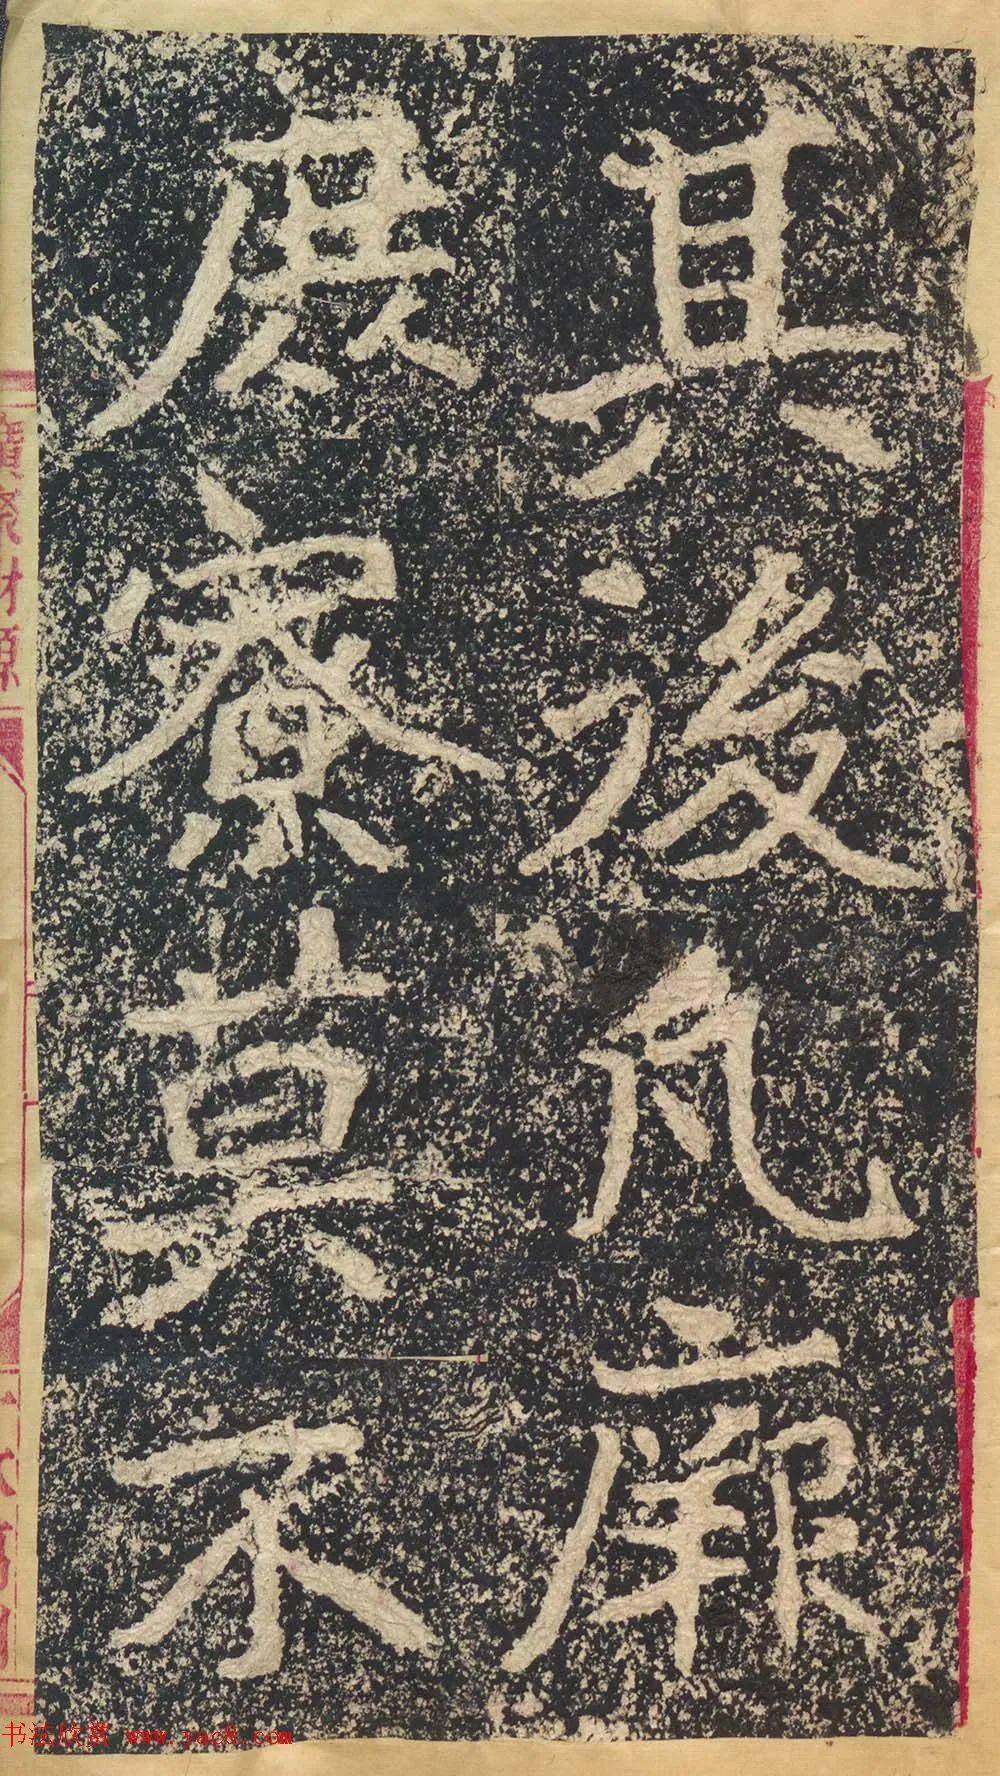 其後凡厥
庶寮莫不
书法欣赏 www.yac8.com